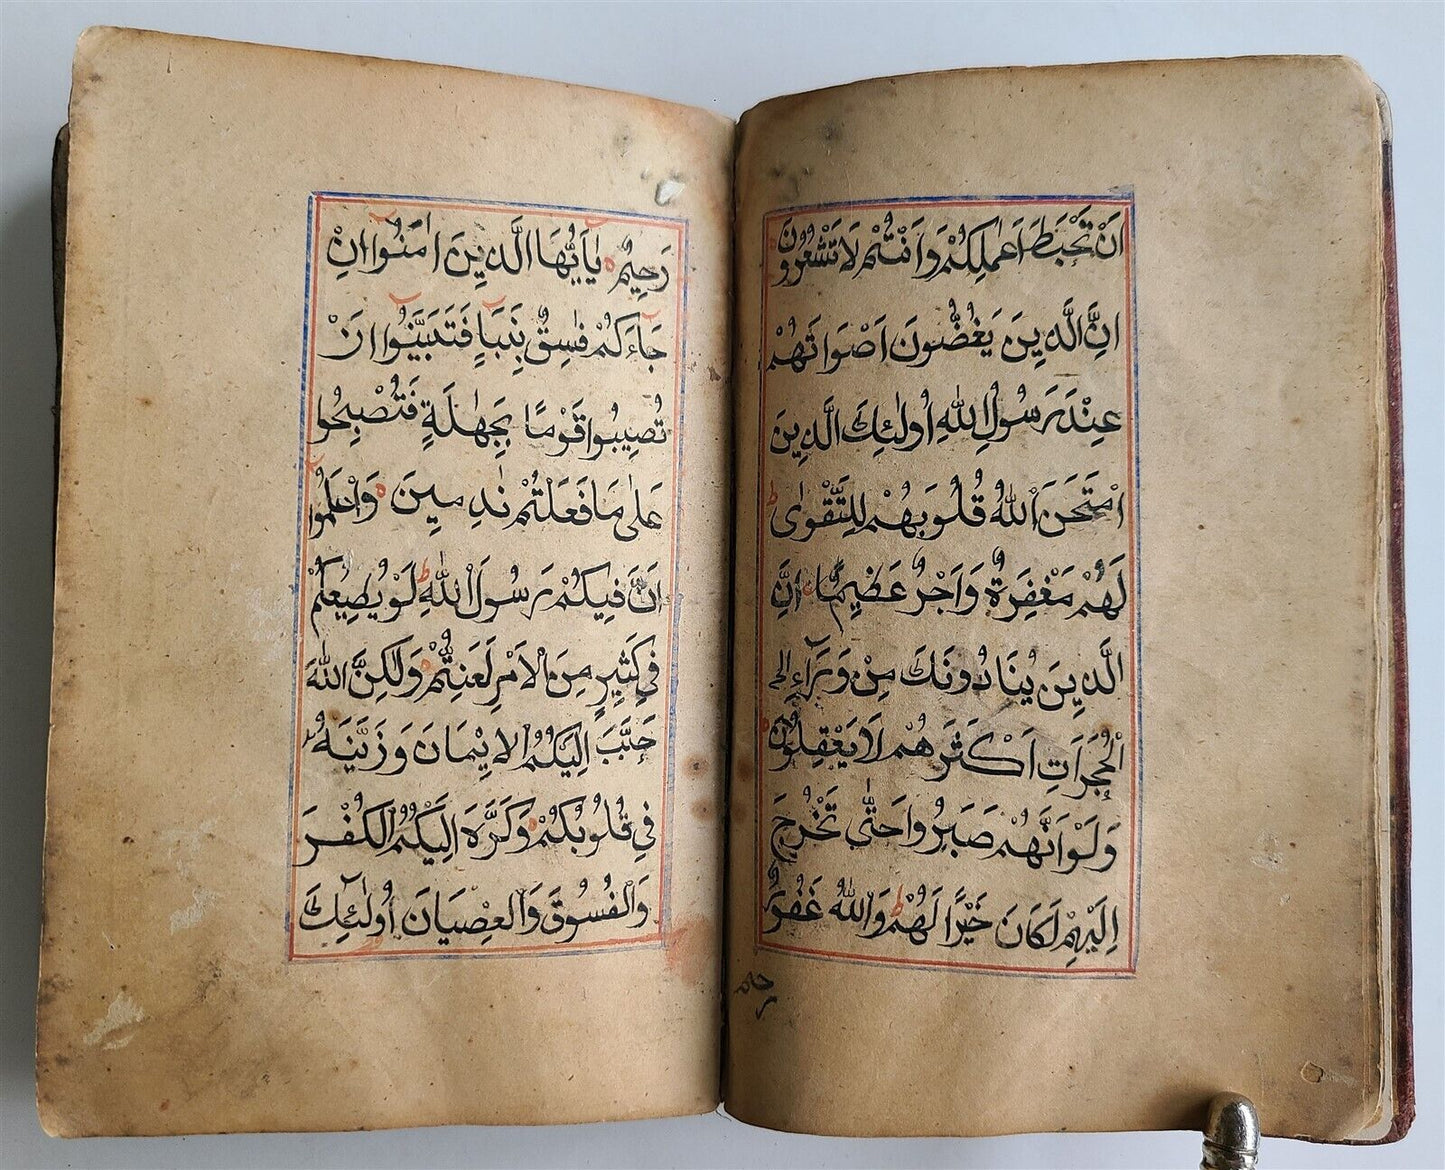 اَنْ تَحْبَطَ اَعْمَالُكُمْ وَاَنْتُمْ لَا تَشْعُرُونَ
اِنَّ الَّذِينَ يَغُضُّونَ اَصْوَاتَهُمْ
عِنْدَ رَسُولِ اللّٰهِ اُولٰئِكَ الَّذِينَ
امْتَحَنَ اللّٰهُ قُلُوبَهُمْ لِلتَّقْوٰى ط
لَهُمْ مَغْفِرَةٌ وَاَجْرٌ عَظِيمٌ اِنَّ
الَّذِينَ يُنَادُونَكَ مِنْ وَرَآءِ
الْحُجُرَاتِ اَكْثَرُهُمْ لَا يَعْقِلُونَ
وَلَوْ اَنَّهُمْ صَبَرُوا حَتّٰى تَخْرُجَ
اِلَيْهِمْ لَكَانَ خَيْرًا لَهُمْ ط وَاللّٰهُ غَفُورٌ
رحيم
رَحِيمٌ يٰٓاَيُّهَا الَّذِينَ اٰمَنُوٓا اِنْ
جَآءَكُمْ فَاسِقٌ بِنَبَاٍ فَتَبَيَّنُوٓا اَنْ
تُصِيبُوا قَوْمًا بِجَهٰلَةٍ فَتُصْبِحُوا
عَلٰى مَا فَعَلْتُمْ نٰدِمِينَ وَاعْلَمُوٓا
اَنَّ فِيكُمْ رَسُولَ اللّٰهِ ط لَوْ يُطِيعُكُمْ
فِي كَثِيرٍ مِنَ الْاَمْرِ لَعَنِتُّمْ وَلٰكِنَّ اللّٰهَ
حَبَّبَ اِلَيْكُمُ الْاِيْمَانَ وَزَيَّنَهُ
فِي قُلُوبِكُمْ وَكَرَّهَ اِلَيْكُمُ الْكُفْرَ
وَالْفُسُوقَ وَالْعِصْيَانَ اُولٰٓئِكَ